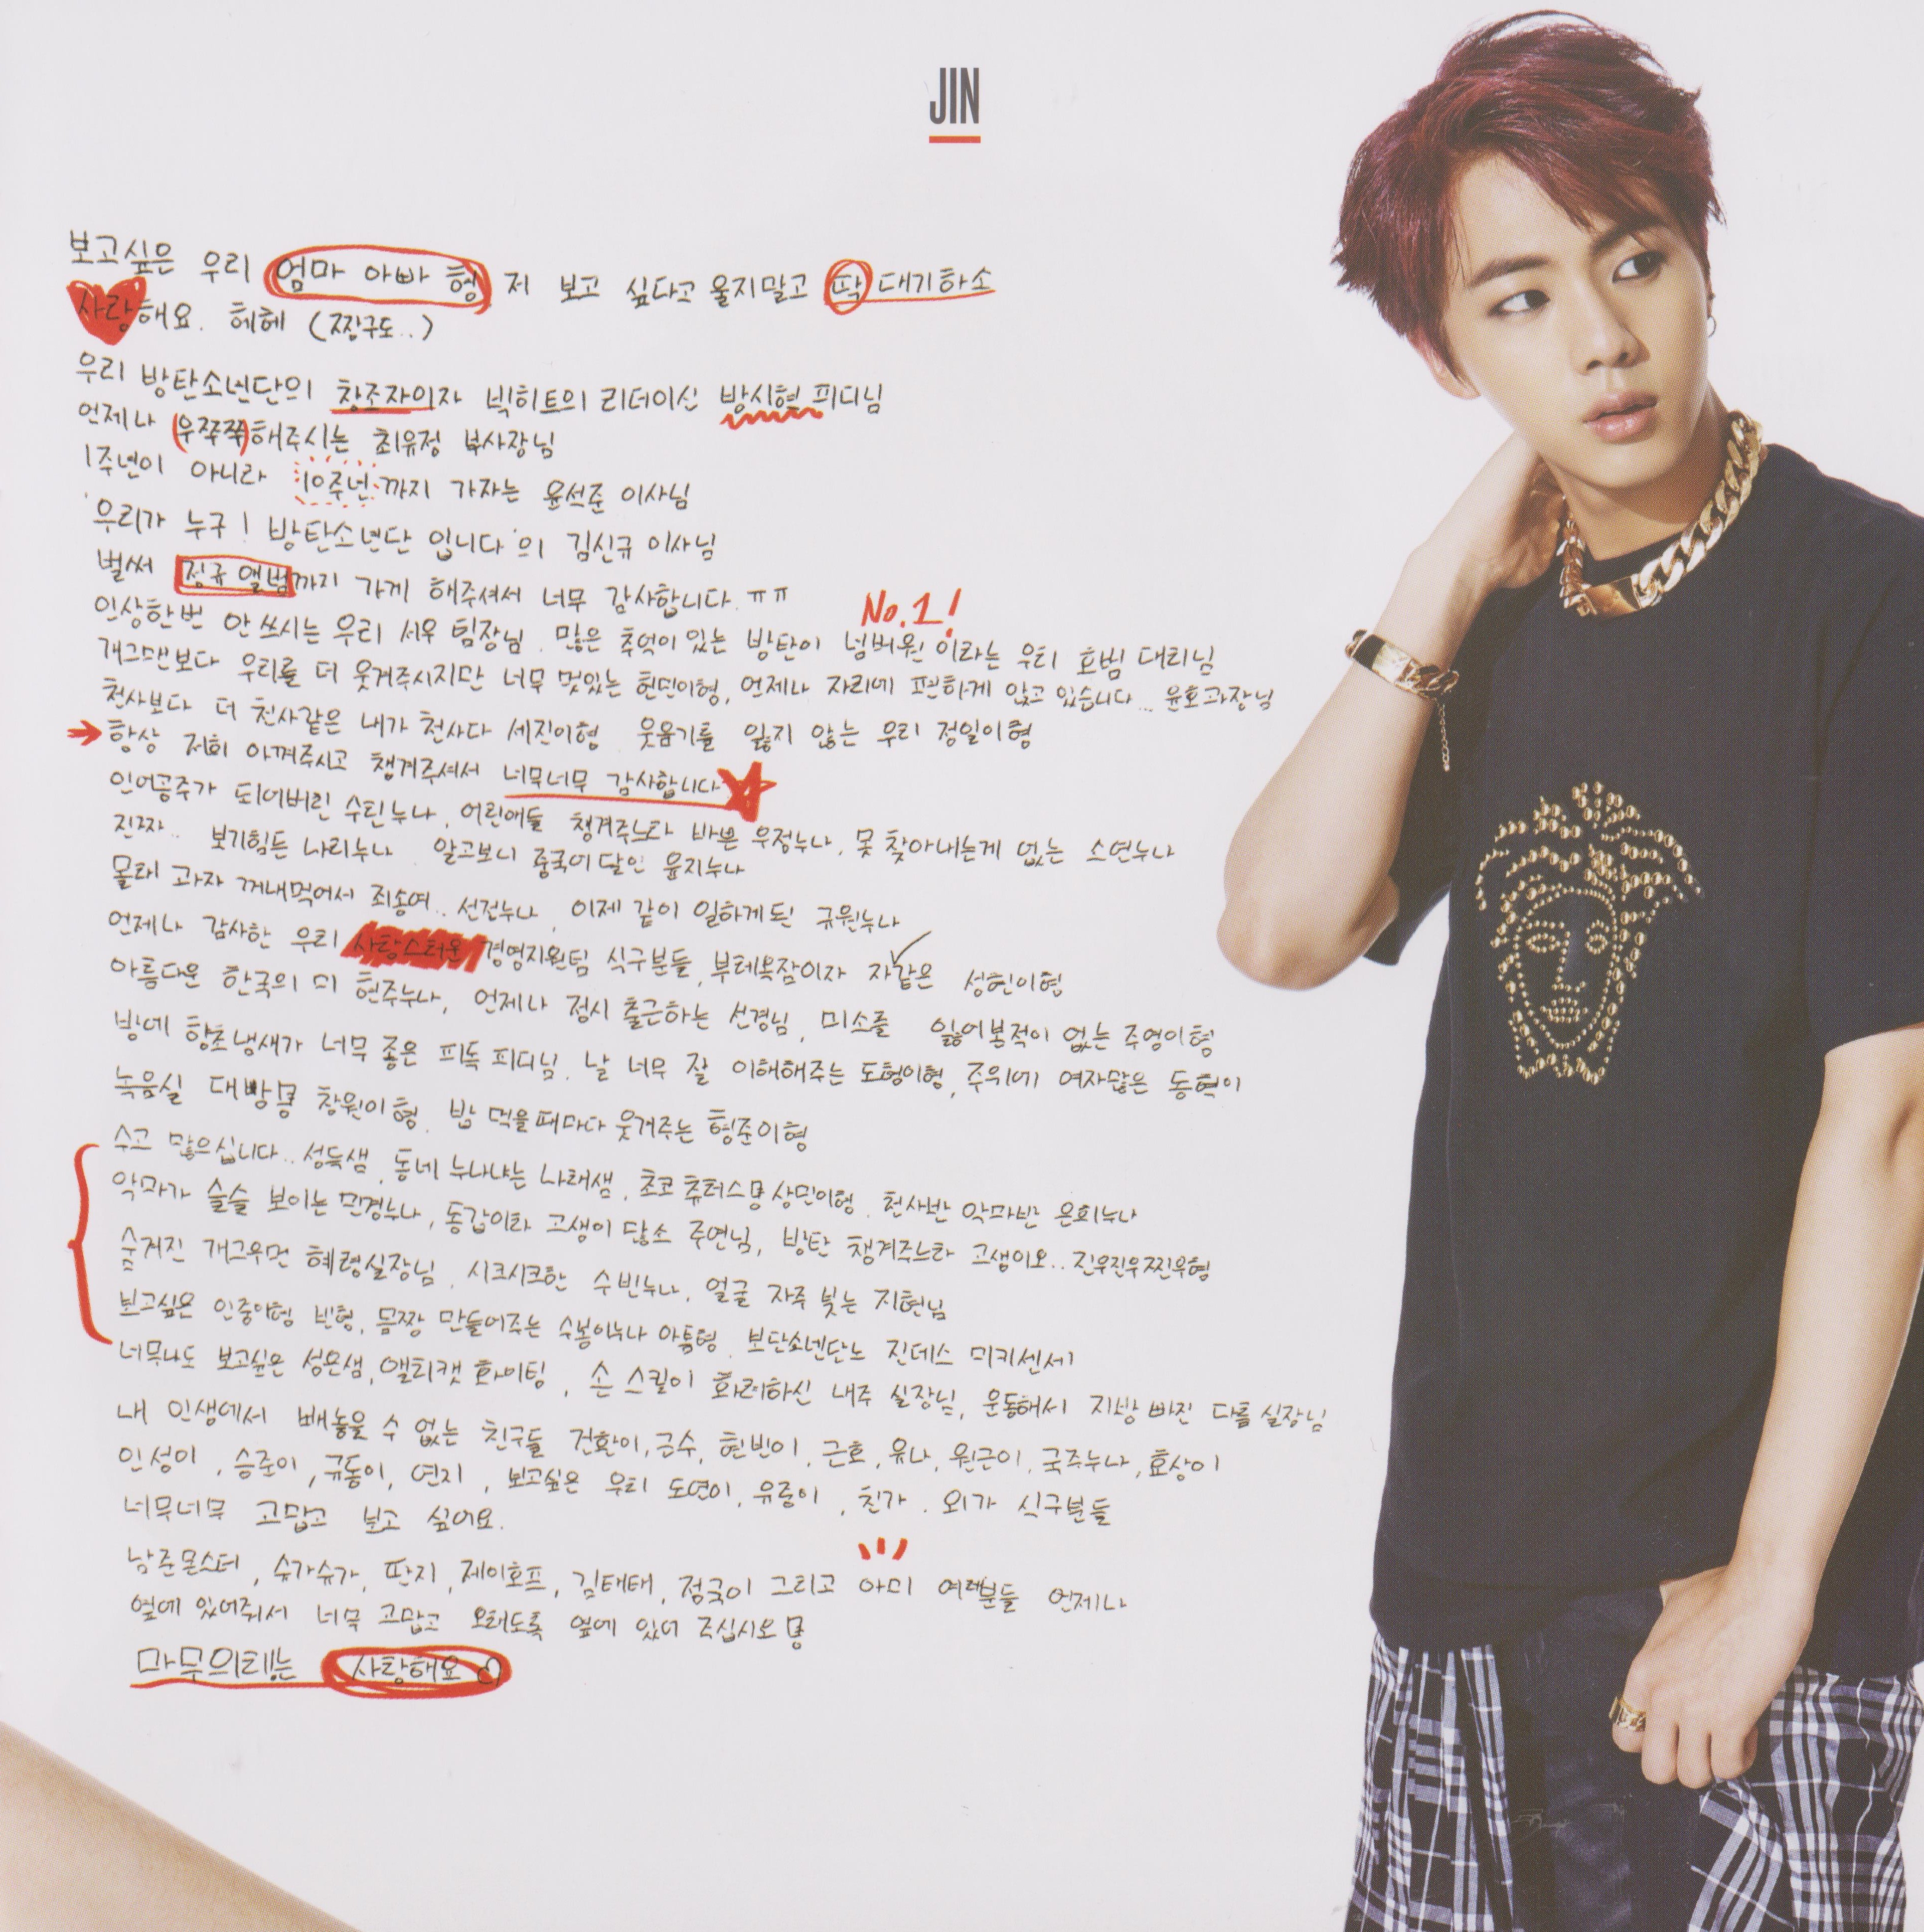 JIN
보고싶은 우리 엄마 아빠 형 저 보고 싶다고 울지말고 딱 대기하소
사랑해요. 헤헤 (짱구도..)
우리 방탄소년단의 창조자이자 빅히트의 리더이신 방시혁 피디님
언제나 우쭈쭈해주시는 최유정 부사장님
1주년이 아니라 10주년까지 가자는 윤석준 이사님
'우리가 누구! 방탄소년단 입니다'의 김신규 이사님
벌써 정규 앨범까지 가게 해주셔서 너무 감사합니다.ㅠㅠ
No.1!
인상한번 안쓰시는 우리 서우 팀장님. 많은 추억이 있는 방탄이 넘버원 이라는 우리 호범 대리님
개그맨보다 우리를 더 웃겨주시지만 너무 멋있는 현민이형, 언제나 자리에 편하게 앉고 있습니다... 윤호과장님
천사보다 더 천사같은 내가 천사다 세진이형 웃음기를 잃지 않는 우리 정일이형
→ 항상 저희 아껴주시고 챙겨주셔서 너무너무 감사합니다
인어공주가 되어버린 수린누나, 어린애들 챙겨주느라 바쁜 우정누나, 못 찾아내는게 없는 소연누나
진짜.. 보기힘든 나리누나. 알고보니 중국어달인 윤지누나
몰래 과자 꺼내먹어서 죄송여.. 선전누나, 이제 같이 일하게된 규원누나
언제나 감사한 우리 사랑스러운 경영지원팀 식구분들, 부테옥잠이자 자갈은 성현이형
아름다운 한국의 미 현주누나, 언제나 정시 출근하는 선경님, 미소를 잃어본적이 없는 주영이형
방에 향초냄새가 너무 좋은 피독 피디님. 날 너무 잘 이해해주는 도형이형, 주위에 여자많은 동혁이
녹음실 대빵 창원이형. 밥 먹을때마다 웃겨주는 형준이형
수고 많으십니다.. 성득샘, 동네 누나같은 나래샘, 초코 츄러스 상민이형. 천사반 악마반 은희누나
악마가 슬슬 보이는 민경누나, 동갑이라 고생이 많소 주연님, 방탄 챙겨주느라 고생이오.. 진우진우찐우형
숨겨진 개그우먼 혜령실장님, 시크시크한 수빈누나, 얼굴 자주 빛는 지현님
보고싶은 인중이형 빈형, 몸짱 만들어주는 수봉이누나 아툭형. 보단소넨단노 진데스 미키센세
너무나도 보고싶은 성은샘, 앨리캣 화이팅, 손 스킬이 화려하신 내주 실장님, 운동해서 지방 빠진 다름 실장님
내 인생에서 빼놓을 수 없는 친구들 건환이, 근수, 현빈이, 근호, 유나, 원근이, 국주누나, 효상이
인성이, 승준이, 규동이, 연지, 보고싶은 우리 도연이, 유중이, 친가. 외가 식구분들
너무너무 고맙고 보고 싶어요.
남준몬스터, 슈가슈가, 딴지, 제이호프, 김태태, 정국이 그리고 아미 여러분들 언제나
옆에 있어줘서 너무 고맙고 오래도록 옆에 있어 주십시오
마무의리는 사랑해요♡